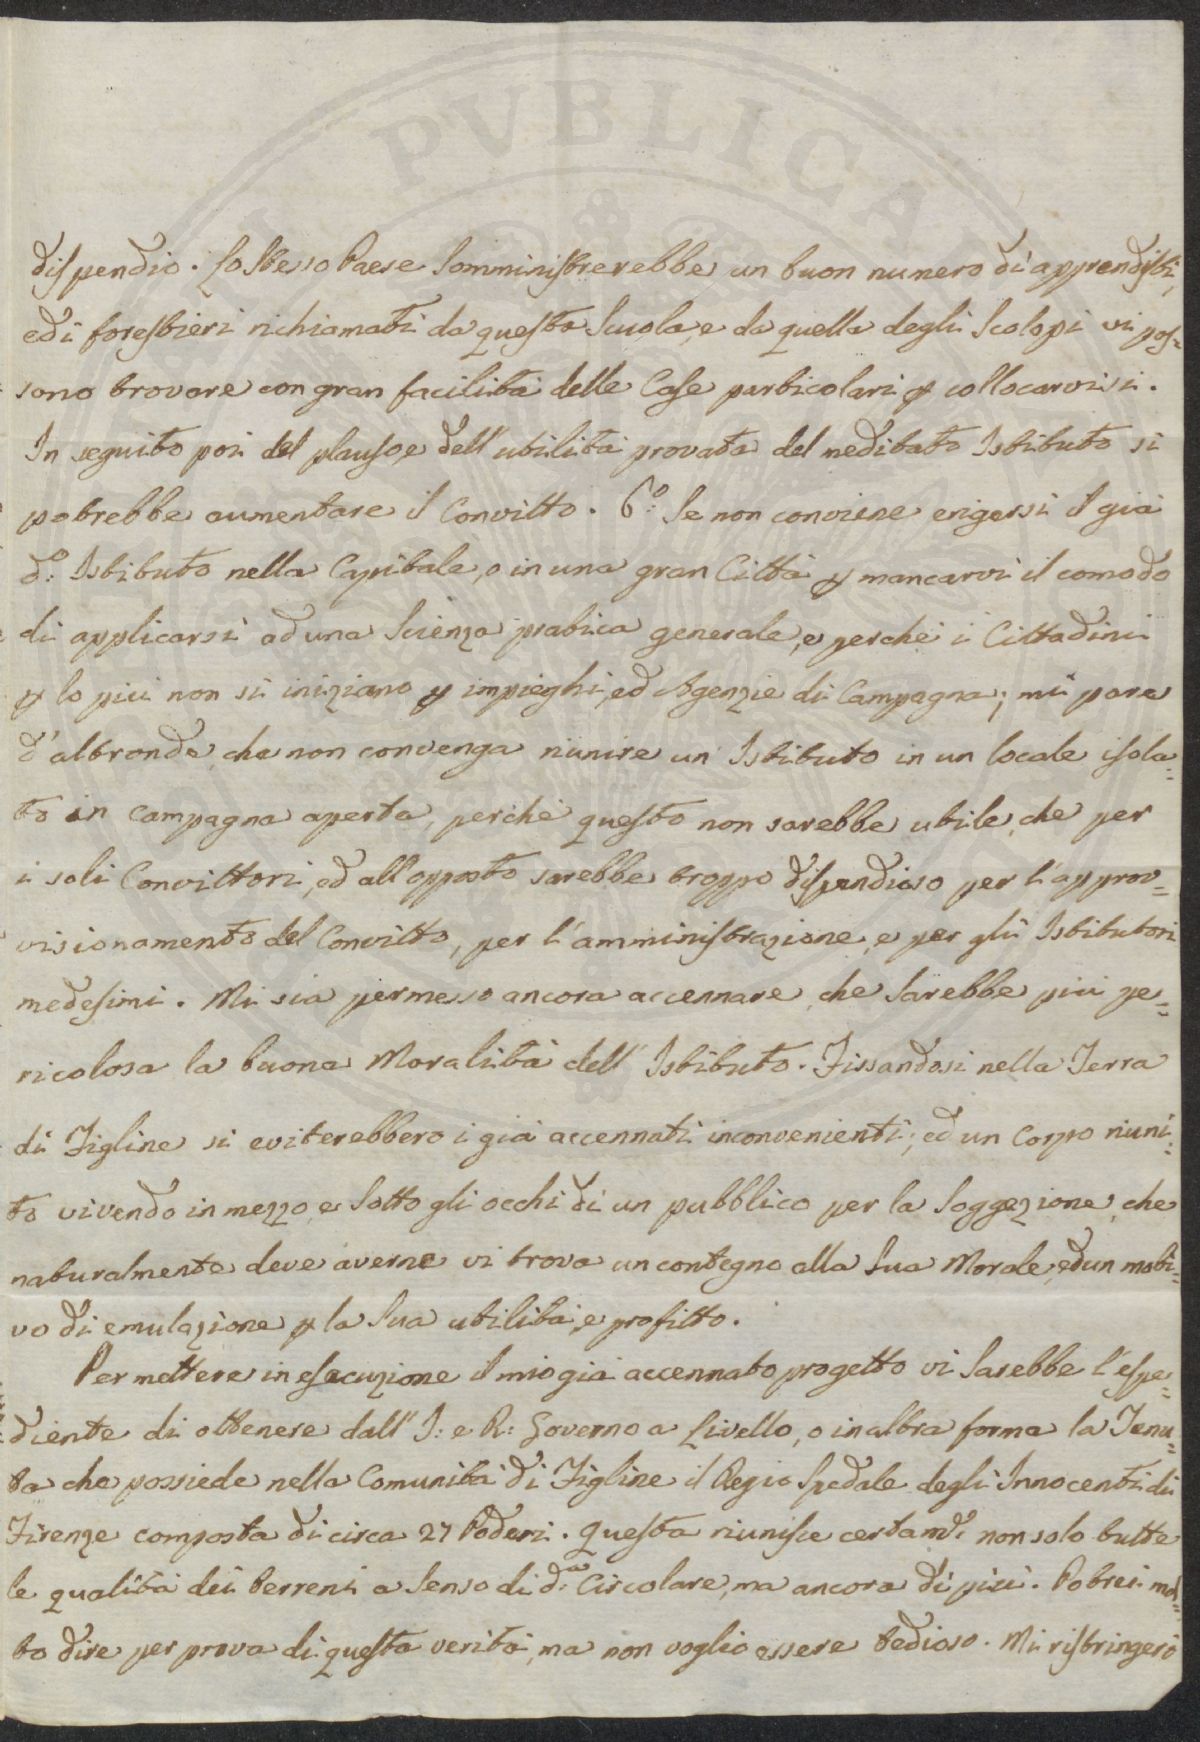 PUBLICA
dispendio. Lo Stesso Paese Somministrerebbe un buon numero di apprendisti,
edi forestieri richiamati da questa Scuola, e da quella degli Scolopi vi pos=
sono trovare con gran facilità delle Case particolari p collocarvisi.
In seguito poi del plauso, e dell'utilità provata del meditato Istituto si
potrebbe aumentare il Convitto. 6.º Se non conviene erigersi il già
d.º Istituto nella Capitale, o in una gran Città p mancarvi il comodo
di applicarsi ad una Scienza pratica generale, e perchè i Cittadini
p lo più non si iniziano p impieghi, ed Agenzie di Campagna; mi pare
d'altronde, che non convenga riunire un Istituto in un locale isola=
to in Campagna aperta, perchè questo non sarebbe utile, che per
i soli Convittori, ed all'opposto sarebbe troppo dispendioso per l'approv=
visionamento del Convitto, per l'amministrazione, e per gli Istitutori
medesimi. Mi sia permesso ancora accennare, che Sarebbe più pe=
ricolosa la buona Moralità dell'Istituto. Fissandosi nella Terra
di Figline si eviterebbero i già accennati inconvenienti; ed un Corpo riuni=
to vivendo in mezzo, e Sotto gli occhi di un pubblico per la Soggezione, che
naturalmente deve averne vi trova un contegno alla Sua Morale, ed un moti=
vo di emulazione p la Sua utilità, e profitto.
Per mettere in esecuzione il mio già accennato progetto vi Sarebbe l'espe=
diente di ottenere dall'I: e R: Governo a Livello, o in altra forma la Tenu=
ta che possiede nella Comunità di Figline il Regio Spedale degli Innocenti di
Firenze composta di circa 27 Poderi. Questa riunisce certamᵉ non solo tutte
le qualità dei terreni a Senso di d.ª Circolare, ma ancora di più. Potrei mol=
to dire per prova di questa verità, ma non voglio essere tedioso. Mi ristringerò